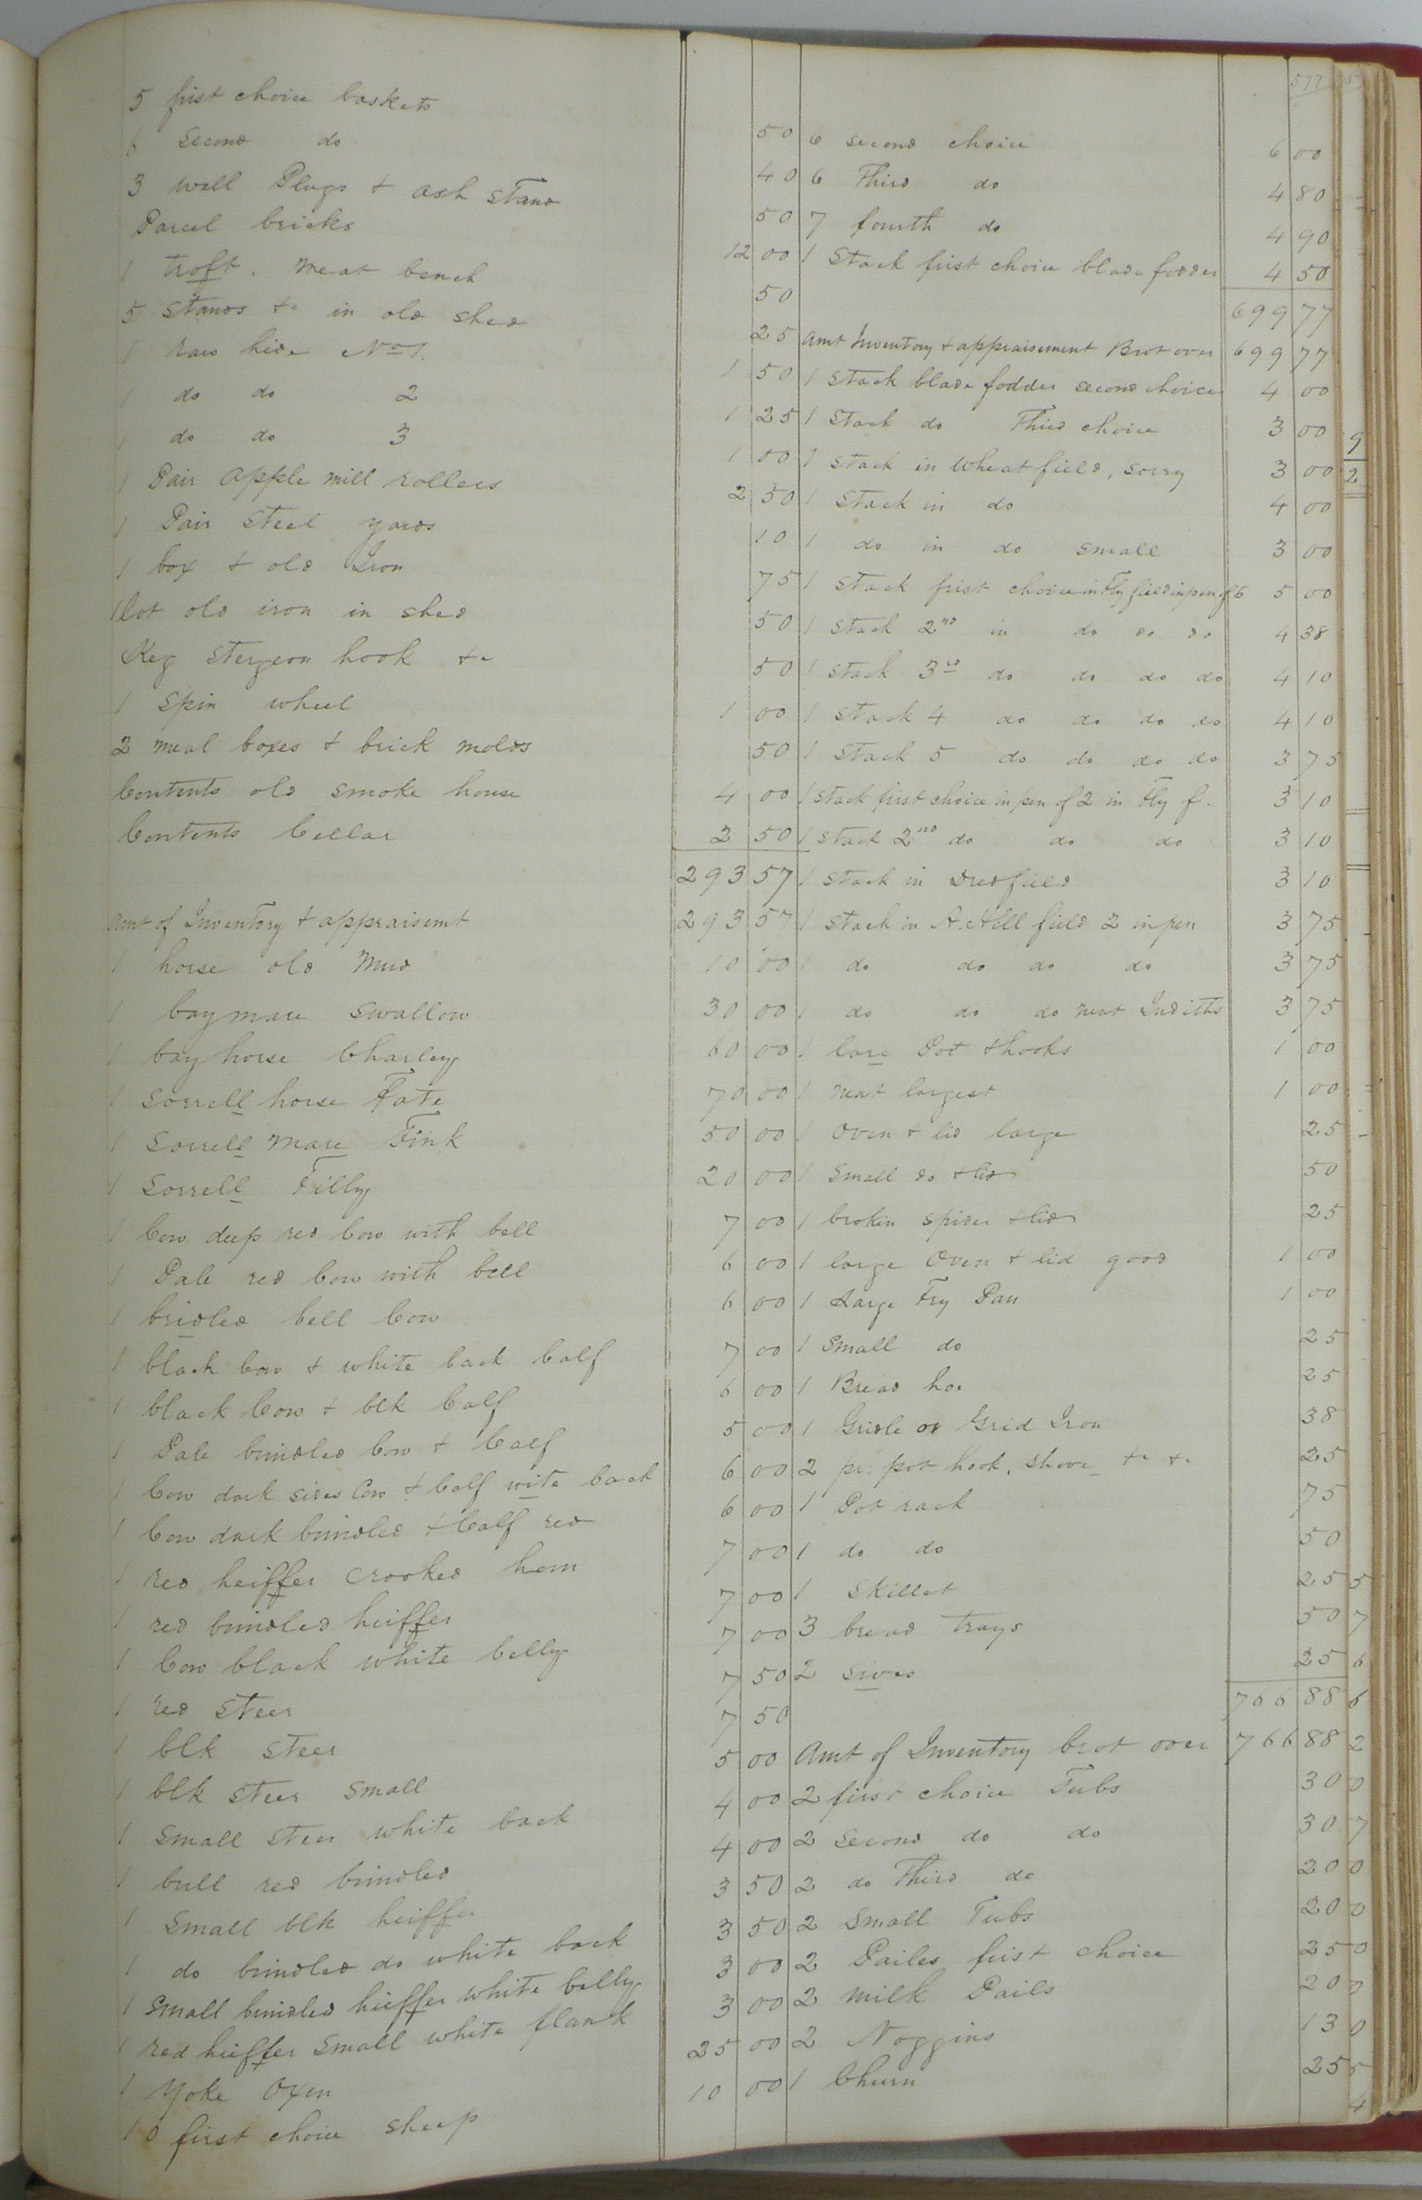 577
5 first choice baskets 50
6 Second do 40
3 well Plugs + ash stand 50
Parcel bricks 12 00
1 troft. meat bench 50
5 stands &c in old shed 25
1 raw hide No 1. 1 50
1 do do 2 1 25
1 do do 3 1 00
1 Pair apple mill rollers 2 50
1 Pair Steel yards 10
1 box + old Iron 75
1 lot old iron in shed 50
Keg stergeon hook &c 50
1 Spin wheel 1 00
2 meal boxes + brick molds 50
Contents old smoke house 4 00
Contents Cellar 2 50
293 57
Amt of Inventory + appraisemt 293 57
1 horse old Mud 10 00
1 bay mare Swallow 30 00
1 bay horse Charley 60 00
1 Sorrell horse Tate 70 00
1 Sorrell mare Fink 50 00
1 Sorrell Filly 20 00
1 Cow deep red Cow with bell 7 00
1 Pale red Cow with bell 6 00
1 bridled bell Cow 6 00
1 black Cow + white back Calf 7 00
1 black Cow + blk Calf 6 00
1 Pale brindled Cow + Calf 5 00
1 Cow dark sides Cow + Calf wite back 6 00
1 Cow dark brindled + Calf red 6 00
1 red heiffer crooked horn 7 00
1 red brindled heiffer 7 00
1 Cow black white belly 7 00
1 red Steer 7 50
1 blk steer 7 50
1 blk steer small 5 00
1 small steer white back 4 00
1 bull red brindled 4 00
1 Small blk heiffer 3 50
1 do brindled do white back 3 50
1 Small brindled heiffer white belly 3 00
1 red heiffer Small white flank 3 00
1 Yoke Oxen 25 00
10 first choice sheep 10 00
6 second choice 6 00
6 Third do 4 80
7 fourth do 4 90
1 Stack first choice blade fodder 4 50
699 77
Amt Inventory + appraisement Brot over 699 77
1 Stack blade fodder second choice 4 00
1 Stack do Third choice 3 00
1 Stack in wheat field, sorry 3 00
1 Stack in do 4 00
1 do in do small 3 00
1 Stack first choice in Fly field in pen of 6 5 00
1 Stack 2nd in do do do 4 38
1 Stack 3rd do do do do 4 10
1 Stack 4 do do do do 4 10
1 Stack 5 do do do do 3 75
1 stack first choice in pen of 2 in Fly f. 3 10
1 stack 2nd do do do 3 10
1 stack in field 3 10
1 stack in A. Hill field 2 in pen 3 75
1 do do do do 3 75
1 do do do next 3 75
1 lare Pot + hooks 1 00
1 next largest 1 00
1 Oven + lid large 25
1 Small do + lid 50
1 broken spider + lid 25
1 large Oven + lid good 1 00
1 Large Fry Pan 1 00
1 Small do 25
1 Bread hoe 25
1 Gridle or Grid Iron 38
2 pr: pot hook, shove &c &c 25
1 Pot rack 75
1 do do 50
1 Skillet 25
3 bread trays 50
2 sives 25
766 88
Amt of Inventory brot over 766 88
2 first choice Tubs 30
2 Second do do 30
2 do Third do 20
2 Small Tubs 20
2 Pailes first choice 25
2 milk Pails 20
2 Noggins 13
1 Churn 25